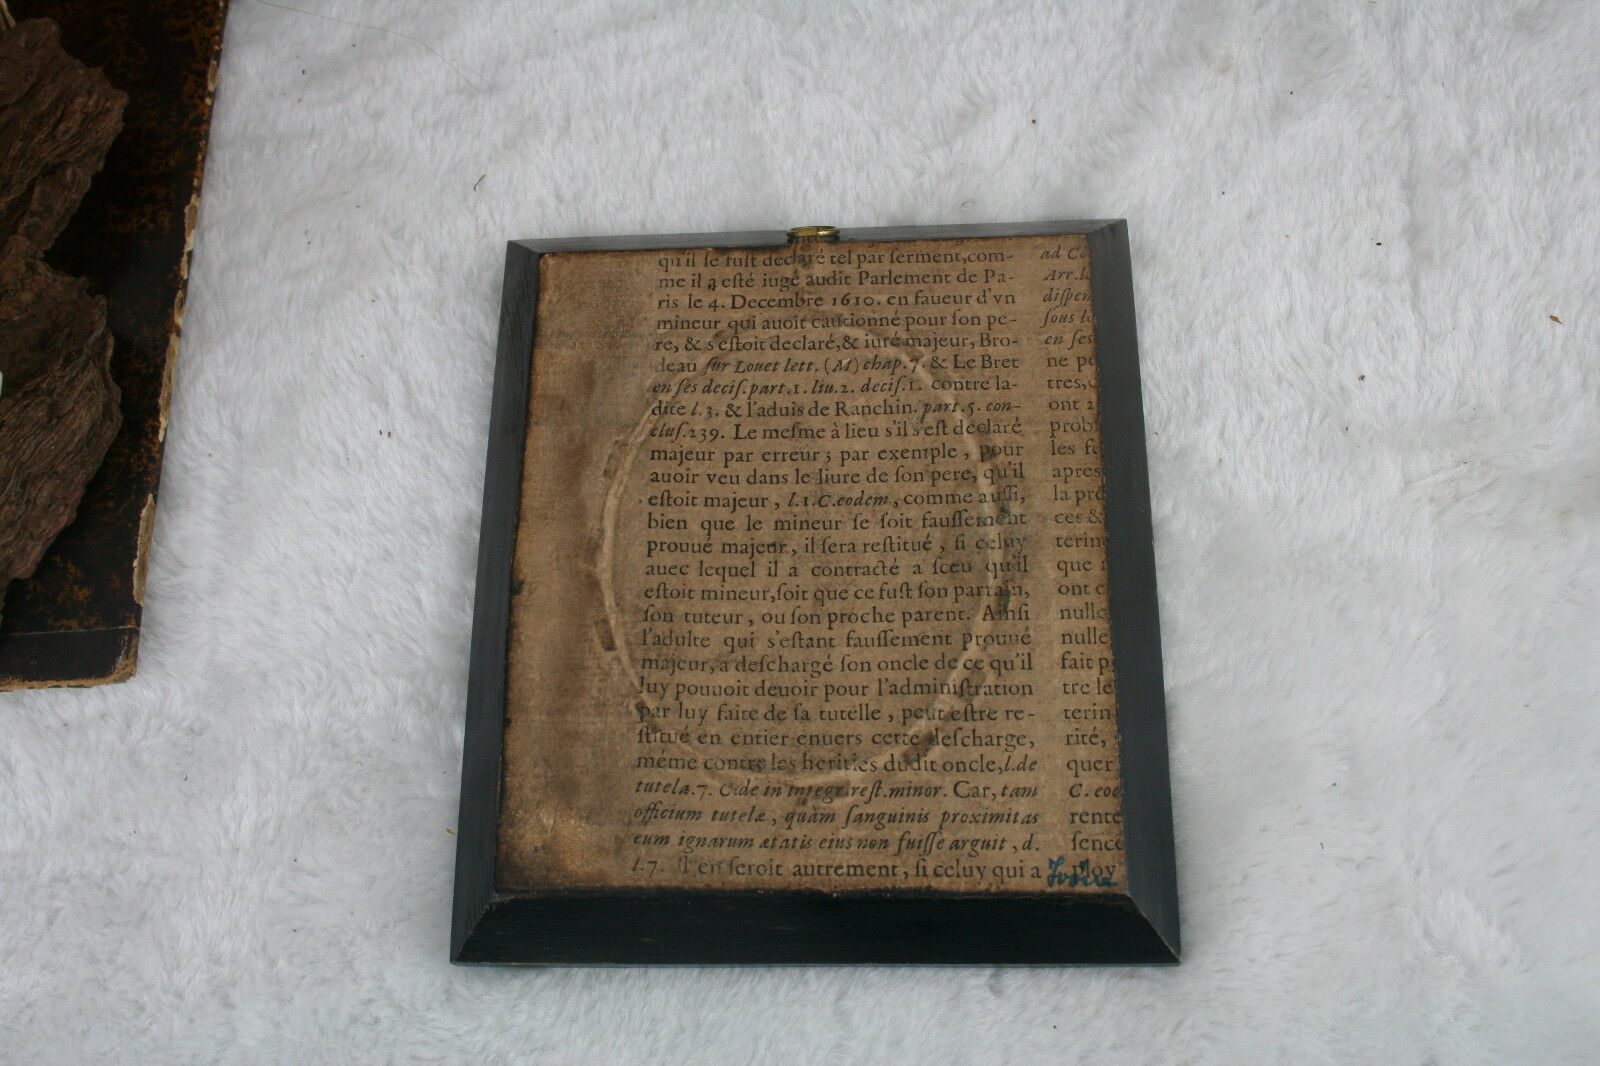 qu'il se fust declaré tel par serment,com-
me il a esté iugé audit Parlement de Pa-
ris le 4. Decembre 1610. en faueur d'vn
mineur qui auoit cautionné pour son pe-
re, & s'estoit declaré,& iuré majeur, Bro-
deau sur Louet lett. (M) chap.7. & Le Bret
en ses decis.part.1. liu.2. decis.1. contre la-
dite l.3. & l'aduis de Ranchin.part.5. con-
clus.239. Le mesme à lieu s'il s'est declaré
majeur par erreur; par exemple, pour
auoir veu dans le liure de son pere, qu'il
estoit majeur, l.1.C.eodem, comme aussi,
bien que le mineur se soit faussement
prouué majeur, il sera restitué, si celuy
auec lequel il a contracté a sceu qu'il
estoit mineur,soit que ce fust son parrain,
son tuteur, ou son proche parent. Ainsi
l'adulte qui s'estant faussement prouué
majeur, a deschargé son oncle de ce qu'il
luy pouuoit deuoir pour l'administration
par luy faite de sa tutelle, peut estre re-
stitué en entier enuers cette descharge,
méme contre les heritiers dudit oncle,l.de
tutela.7. C.de in integr.rest.minor. Car, tam
officium tutelæ, quàm sanguinis proximitas
eum ignarum ætatis eius non fuisse arguit, d.
l.7. Il en seroit autrement, si celuy qui a
ad
Arr.
dispen
sous
en ses
ne
tres,
ont 2
prob
les
apres
la
ces &
terin
que
ont
nulle
nulle
fait p
tre le
terin
rité,
quer
C. eod
rente
sence
ploy